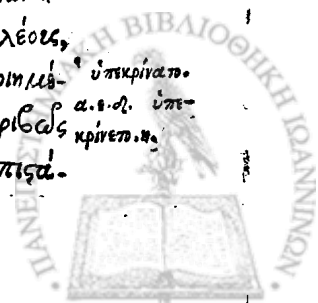 λέοις,
οιημέ-
ριβῶς
πιςά-
ὑπεκρίνατο.
α.ε.ζ. ὑπε-
κρίνετο.
ΠΑΝΕΠΙΣΤΗΜΙΟ ΒΙΒΛΙΟΘΗΚΗ ΙΩΑΝΝΙΝΩΝ